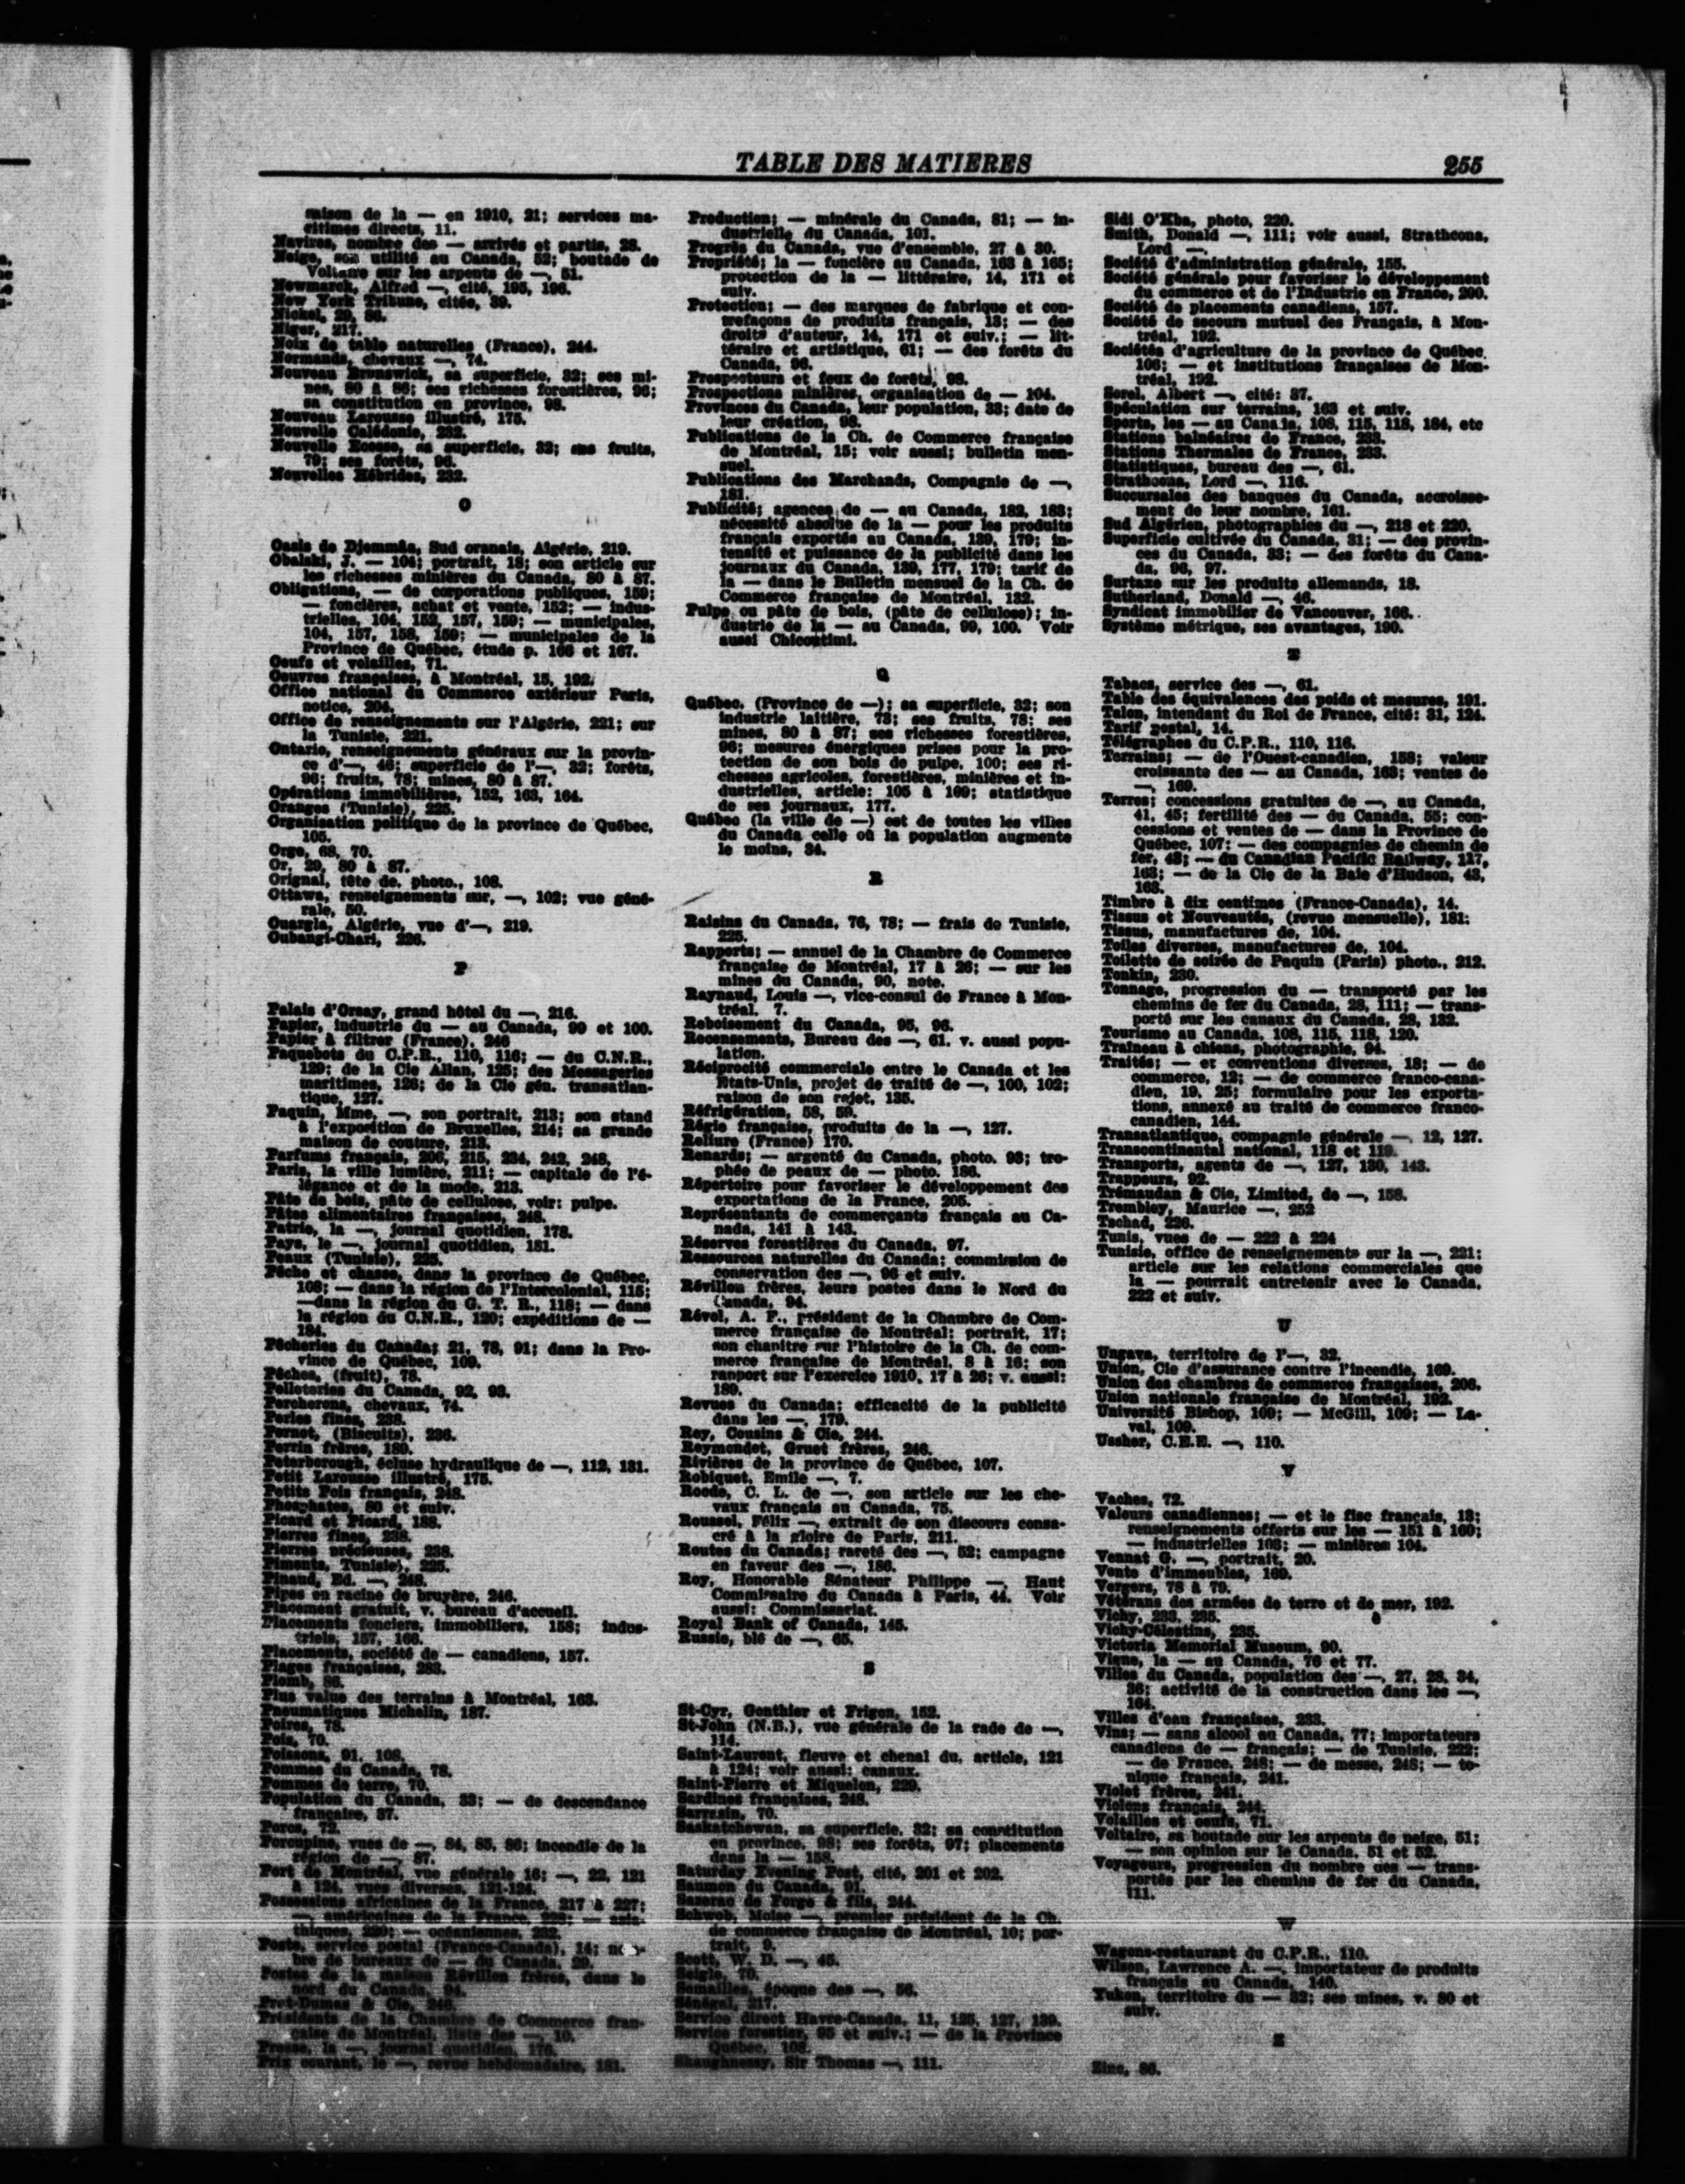 TABLE DES MATIERES 255
raison de la — en 1910, 21; services ma-
ritimes directs, 11.
Navires, nombre des — arrivés et partis, 28.
Neige, son utilité au Canada, 52; boutade de
Voltaire sur les arpents de —, 51.
Newmarck, Alfred —, cité, 195, 196.
New York Tribune, citée, 39.
Nickel, 29, 86.
Niger, 217.
Noix de table naturelles (France), 244.
Normands, chevaux —, 74.
Nouveau Brunswick, sa superficie, 32; ses mi-
nes, 80 à 86; ses richesses forestières, 96;
sa constitution en province, 98.
Nouveau Larousse illustré, 175.
Nouvelle Calédonie, 232.
Nouvelle Ecosse, sa superficie, 32; ses fruits,
79; ses forêts, 96.
Nouvelles Hébrides, 232.
O
Oasis de Djemmâa, Sud oranais, Algérie, 219.
Obalski, J. — 104; portrait, 18; son article sur
les richesses minières du Canada, 80 à 87.
Obligations, — de corporations publiques, 159;
— foncières, achat et vente, 152; — indus-
trielles, 104, 152, 157, 159; — municipales,
104, 157, 158, 159; — municipales de la
Province de Québec, étude p. 166 et 167.
Oeufs et volailles, 71.
Oeuvres françaises, à Montréal, 15, 192.
Office national du Commerce extérieur Paris,
notice, 204.
Office de renseignements sur l'Algérie, 221; sur
la Tunisie, 221.
Ontario, renseignements généraux sur la provin-
ce d'—, 46; superficie de l'—, 32; forêts,
96; fruits, 78; mines, 80 à 87.
Opérations immobilières, 152, 163, 164.
Oranges (Tunisie), 225.
Organisation politique de la province de Québec,
105.
Orge, 68, 70.
Or, 29, 80 à 87.
Orignal, tête de, photo., 108.
Ottawa, renseignements sur, —, 102; vue géné-
rale, 50.
Ouargla, Algérie, vue d'—, 219.
Oubangi-Chari, 226.
P
Palais d'Orsay, grand hôtel du —, 216.
Papier, industrie du — au Canada, 99 et 100.
Papier à filtrer (France), 246
Paquebots du C.P.R., 110, 116; — du C.N.R.,
129; de la Cie Allan, 125; des Messageries
maritimes, 126; de la Cie gén. transatlan-
tique, 127.
Paquin, Mme, —, son portrait, 213; son stand
à l'exposition de Bruxelles, 214; sa grande
maison de couture, 213.
Parfums français, 206, 215, 234, 242, 248.
Paris, la ville lumière, 211; — capitale de l'é-
légance et de la mode, 213.
Pâte de bois, pâte de cellulose, voir: pulpe.
Pâtes alimentaires françaises, 248.
Patrie, la —, journal quotidien, 178.
Pays, le —, journal quotidien, 181.
Peaux (Tunisie), 225.
Pêche et chasse, dans la province de Québec,
108; — dans la région de l'Intercolonial, 115;
—dans la région du G. T. R., 118; — dans
la région du C.N.R., 120; expéditions de —
184.
Pêcheries du Canada; 21, 78, 91; dans la Pro-
vince de Québec, 109.
Pêches, (fruit), 78.
Pelleteries du Canada, 92, 93.
Percherons, chevaux, 74.
Perles fines, 238.
Pernot, (Biscuits), 236.
Perrin frères, 189.
Peterborough, écluse hydraulique de —, 112, 131.
Petit Larousse illustré, 175.
Petits Pois français, 248.
Phosphates, 80 et suiv.
Picard et Picard, 188.
Pierres fines, 238.
Pierres précieuses, 238.
Piments, Tunisie), 225.
Pinaud, Ed. —, 248.
Pipes en racine de bruyère, 246.
Placement gratuit, v. bureau d'accueil.
Placements fonciers, immobiliers, 158; indus-
triels, 157, 166.
Placements, société de — canadiens, 157.
Plages françaises, 233.
Plomb, 86.
Plus value des terrains à Montréal, 163.
Pneumatiques Michelin, 187.
Poires, 78.
Pois, 70.
Poissons, 91, 108.
Pommes du Canada, 78.
Pommes de terre, 70.
Population du Canada, 33; — de descendance
française, 37.
Porcs, 72.
Porcupine, vues de —, 84, 85, 86; incendie de la
région de —, 87.
Port de Montréal, vue générale 16; —, 22, 121
à 124, vues diverses, 121-124.
Possessions africaines de la France, 217 à 227;
— américaines de la France, 229; — asia-
tiques, 230; — océaniennes, 232.
Poste, service postal (France-Canada), 14;
bre de bureaux de — du Canada, 29.
Postes de la maison Révillon frères, dans le
nord du Canada, 94.
Prot-Dumas & Cie, 246.
Présidents de la Chambre de Commerce fran-
çaise de Montréal, liste des —, 10.
Presse, la —, journal quotidien, 176.
Prix courant, le —, revue hebdomadaire, 181.
Production; — minérale du Canada, 81; — in-
dustrielle du Canada, 101.
Progrès du Canada, vue d'ensemble, 27 à 30.
Propriété; la — foncière au Canada, 163 à 165;
protection de la — littéraire, 14, 171 et
suiv.
Protection; — des marques de fabrique et con-
trefaçons de produits français, 13; — des
droits d'auteur, 14, 171 et suiv.; — lit-
téraire et artistique, 61; — des forêts du
Canada, 96.
Prospecteurs et feux de forêts, 98.
Prospections minières, organisation de — 104.
Provinces du Canada, leur population, 33; date de
leur création, 98.
Publications de la Ch. de Commerce française
de Montréal, 15; voir aussi; bulletin men-
suel.
Publications des Marchands, Compagnie de —,
181.
Publicité; agences de — au Canada, 182, 183;
nécessité absolue de la — pour les produits
français exportés au Canada, 139, 179; in-
tensité et puissance de la publicité dans les
journaux du Canada, 139, 177, 179; tarif de
la — dans le Bulletin mensuel de la Ch. de
Commerce française de Montréal, 132.
Pulpe ou pâte de bois, (pâte de cellulose); in-
dustrie de la — au Canada, 99, 100. Voir
aussi Chicoutimi.
Q
Québec, (Province de —); sa superficie, 32; son
industrie laitière, 73; ses fruits, 78; ses
mines, 80 à 87; ses richesses forestières,
96; mesures énergiques prises pour la pro-
tection de son bois de pulpe, 100; ses ri-
chesses agricoles, forestières, minières et in-
dustrielles, article: 105 à 109; statistique
de ses journaux, 177.
Québec (la ville de —) est de toutes les villes
du Canada celle où la population augmente
le moins, 34.
R
Raisins du Canada, 76, 78; — frais de Tunisie,
225.
Rapports; — annuel de la Chambre de Commerce
française de Montréal, 17 à 26; — sur les
mines du Canada, 90, note.
Raynaud, Louis —, vice-consul de France à Mon-
tréal, 7.
Reboisement du Canada, 95, 96.
Recensements, Bureau des —, 61. v. aussi popu-
lation.
Réciprocité commerciale entre le Canada et les
Etats-Unis, projet de traité de —, 100, 102;
raison de son rejet, 135.
Réfrigération, 58, 59.
Régie française, produits de la —, 127.
Reliure (France) 170.
Renards; — argenté du Canada, photo. 93; tro-
phée de peaux de — photo. 186.
Répertoire pour favoriser le développement des
exportations de la France, 205.
Représentants de commerçants français au Ca-
nada, 141 à 143.
Réserves forestières du Canada, 97.
Ressources naturelles du Canada; commission de
conservation des —, 96 et suiv.
Révillon frères, leurs postes dans le Nord du
Canada, 94.
Révol, A. F., président de la Chambre de Com-
merce française de Montréal; portrait, 17;
son chapitre sur l'histoire de la Ch. de com-
merce française de Montréal, 8 à 16; son
rapport sur l'exercice 1910, 17 à 26; v. aussi:
189.
Revues du Canada; efficacité de la publicité
dans les —, 179.
Rey, Cousins & Cie, 244.
Reymondet, Gruet frères, 246.
Rivières de la province de Québec, 107.
Robiquet, Emile —, 7.
Roode, C. L. de —, son article sur les che-
vaux français au Canada, 75.
Roussel, Félix —, extrait de son discours consa-
cré à la gloire de Paris, 211.
Routes du Canada; rareté des —, 52; campagne
en faveur des —, 186.
Roy, Honorable Sénateur Philippe —, Haut
Commissaire du Canada à Paris, 44. Voir
aussi: Commissariat.
Royal Bank of Canada, 145.
Russie, blé de —, 65.
S
St-Cyr, Gonthier et Frigon, 152.
St-John (N.B.), vue générale de la rade de —,
114.
Saint-Laurent, fleuve et chenal du, article, 121
à 124; voir aussi: canaux.
Saint-Pierre et Miquelon, 229.
Sardines françaises, 248.
Sarrasin, 70.
Saskatchewan, sa superficie, 32; sa constitution
en province, 98; ses forêts, 97; placements
dans la — 158.
Saturday Evening Post, cité, 201 et 202.
Saumon du Canada, 91.
Sazerac de Forge & fils, 244.
Schwob, Moïse —, premier président de la Ch.
de commerce française de Montréal, 10; por-
trait, 9.
Scott, W. D. —, 45.
Seigle, 70.
Semailles, époque des —, 56.
Sénégal, 217.
Service direct Havre-Canada, 11, 125, 127, 139.
Service forestier, 95 et suiv.; — de la Province
Québec, 108.
Shaughnessy, Sir Thomas —, 111.
Sidi O'Kba, photo, 220.
Smith, Donald —, 111; voir aussi, Strathcona,
Lord —.
Société d'administration générale, 155.
Société générale pour favoriser le développement
du commerce et de l'Industrie en France, 200.
Société de placements canadiens, 157.
Société de secours mutuel des Français, à Mon-
tréal, 192.
Sociétés d'agriculture de la province de Québec,
106; — et institutions françaises de Mon-
tréal, 192.
Sorel, Albert —, cité: 37.
Spéculation sur terrains, 163 et suiv.
Sports, les — au Canada, 108, 115, 118, 184, etc
Stations balnéaires de France, 233.
Stations Thermales de France, 233.
Statistiques, bureau des —, 61.
Strathcona, Lord —, 116.
Succursales des banques du Canada, accroisse-
ment de leur nombre, 161.
Sud Algérien, photographies du —, 218 et 220.
Superficie cultivée du Canada, 31; — des provin-
ces du Canada, 33; — des forêts du Cana-
da, 96, 97.
Surtaxe sur les produits allemands, 18.
Sutherland, Donald —, 46.
Syndicat immobilier de Vancouver, 166.
Système métrique, ses avantages, 190.
Tabacs, service des —, 61.
Table des équivalences des poids et mesures, 191.
Talon, intendant du Roi de France, cité: 31, 124.
Tarif postal, 14.
Télégraphes du C.P.R., 110, 116.
Terrains; — de l'Ouest-canadien, 158; valeur
croissante des — au Canada, 163; ventes de
—, 169.
Terres; concessions gratuites de —, au Canada,
41, 45; fertilité des — du Canada, 55; con-
cessions et ventes de — dans la Province de
Québec, 107; — des compagnies de chemin de
fer, 43; — du Canadian Pacific Railway, 117,
163; — de la Cie de la Baie d'Hudson, 43,
163.
Timbre à dix centimes (France-Canada), 14.
Tissus et Nouveautés, (revue mensuelle), 181:
Tissus, manufactures de, 104.
Toiles diverses, manufactures de, 104.
Toilette de soirée de Paquin (Paris) photo., 212.
Tonkin, 230.
Tonnage, progression du — transporté par les
chemins de fer du Canada, 28, 111; — trans-
porté sur les canaux du Canada, 28, 132.
Tourisme au Canada, 108, 115, 118, 120.
Traîneau à chiens, photographie, 94.
Traités; — et conventions diverses, 18; — de
commerce, 12; — de commerce franco-cana-
dien, 19, 25; formulaire pour les exporta-
tions, annexé au traité de commerce franco-
canadien, 144.
Transatlantique, compagnie générale —, 12, 127.
Transcontinental national, 118 et 119.
Transports, agents de —, 127, 130, 143.
Trappeurs, 92.
Trémaudan & Cie, Limited, de —, 158.
Trembley, Maurice —, 252
Tschad, 226.
Tunis, vues de — 222 à 224
Tunisie, office de renseignements sur la —, 221;
article sur les relations commerciales que
la — pourrait entretenir avec le Canada,
222 et suiv.
U
Ungava, territoire de l'—, 32.
Union, Cie d'assurance contre l'incendie, 169.
Union des chambres de commerce françaises, 206.
Union nationale française de Montréal, 192.
Université Bishop, 109; — McGill, 109; — La-
val, 109.
Ussher, C.E.E. —, 110.
V
Vaches, 72.
Valeurs canadiennes; — et le fisc français, 13;
renseignements offerts sur les — 151 à 160;
— industrielles 103; — minières 104.
Vennat G. —, portrait, 20.
Vente d'immeubles, 169.
Vergers, 78 à 79.
Vétérans des armées de terre et de mer, 192.
Vichy, 233, 235.
Vichy-Célestins, 235.
Victoria Memorial Museum, 90.
Vigne, la — au Canada, 76 et 77.
Villes du Canada, population des —, 27, 28, 34,
36; activité de la construction dans les —,
164.
Villes d'eau françaises, 233.
Vins; — sans alcool au Canada, 77; importateurs
canadiens de — français; — de Tunisie, 222;
— de France, 248; — de messe, 248; — to-
nique français, 241.
Violet frères, 241.
Violons français, 244.
Volailles et oeufs, 71.
Voltaire, sa boutade sur les arpents de neige, 51;
— son opinion sur le Canada, 51 et 52.
Voyageurs, progression du nombre des — trans-
portés par les chemins de fer du Canada,
111.
W
Wagons-restaurant du C.P.R., 110.
Wilson, Lawrence A. —, importateur de produits
français au Canada, 140.
Yukon, territoire du — 32; ses mines, v. 80 et
suiv.
Z
Zinc, 86.